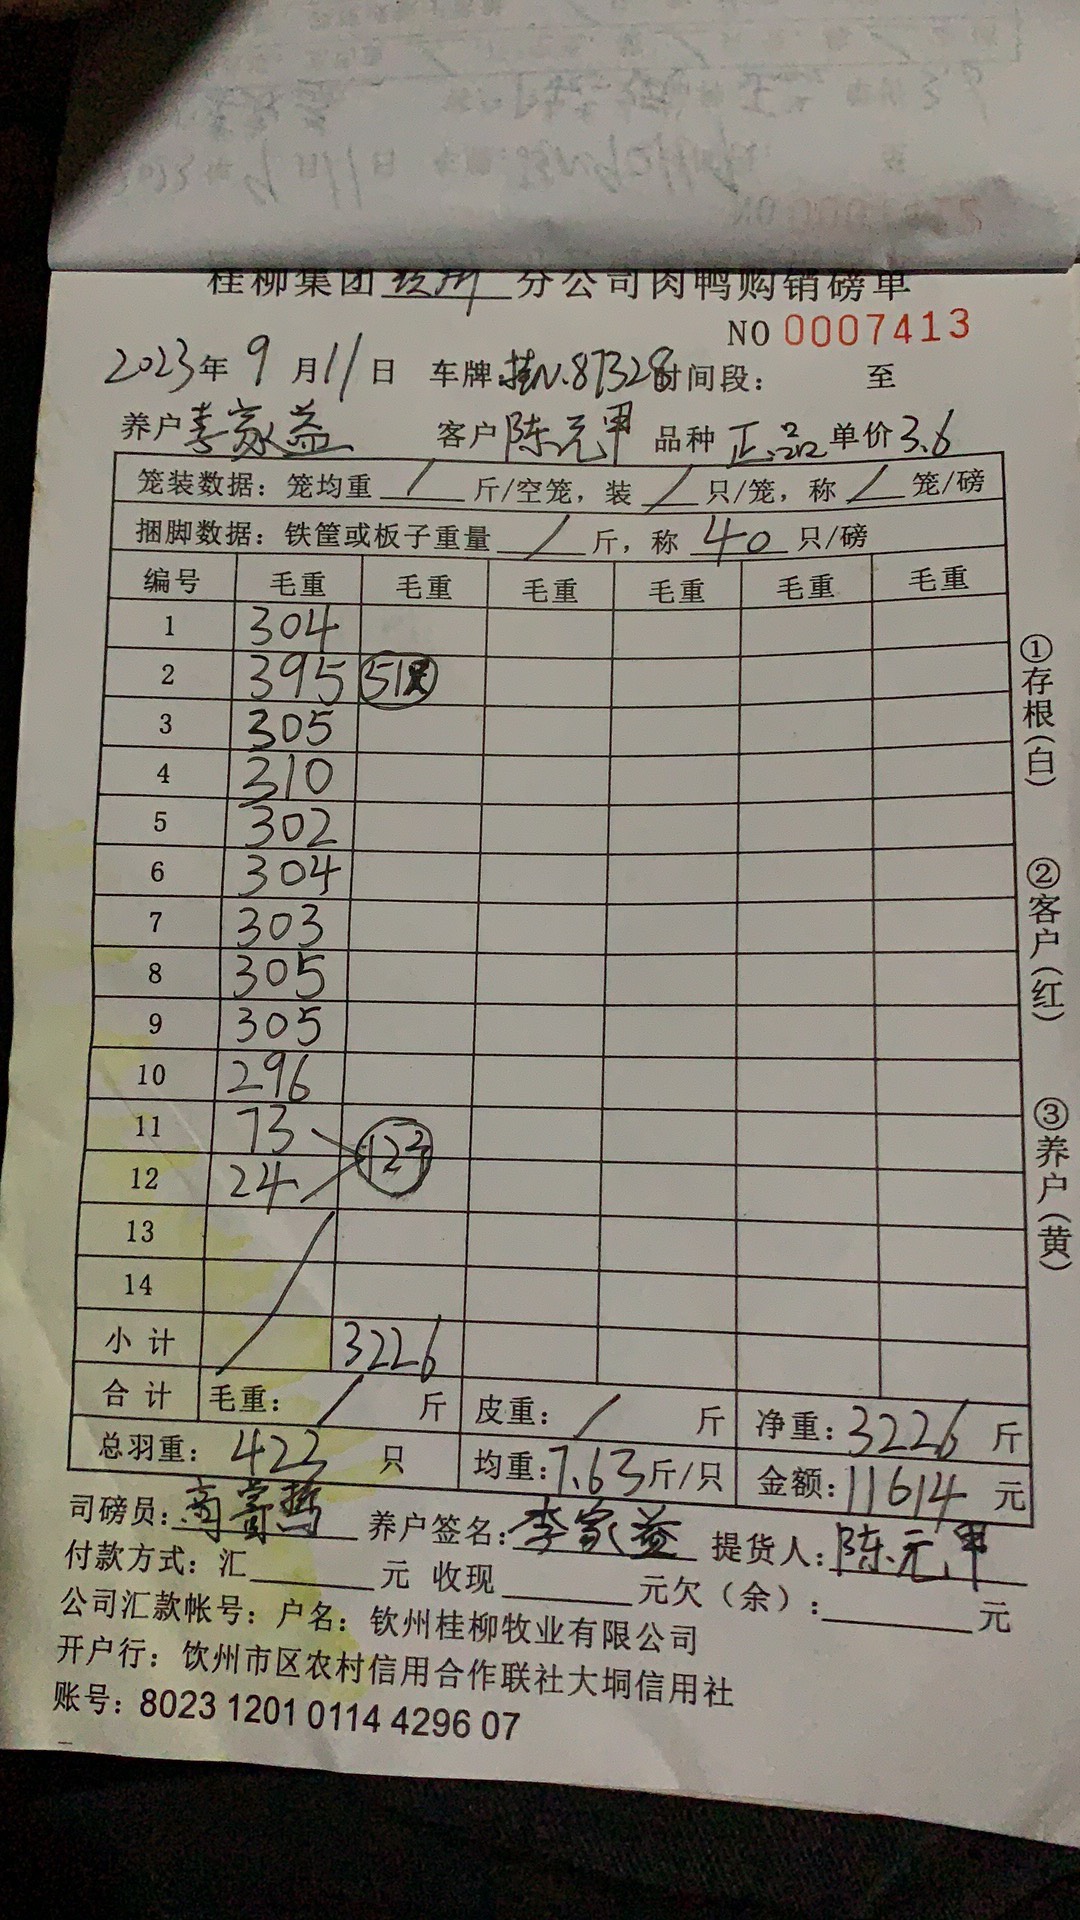 桂柳集团钦州分公司肉鸭购销磅单
NO 0007413
2023年9月11日 车牌:桂N.87328时间段: 至
养户李家益 客户陈元甲 品种正品单价3.6
笼装数据:笼均重/斤/空笼,装/只/笼,称/笼/磅
捆脚数据:铁筐或板子重量/斤,称40只/磅
编号 毛重 毛重 毛重 毛重 毛重 毛重
1 304
2 395 51只
3 305
4 310
5 302
6 304
7 303
8 305
9 305
10 296
11 73
12 24
13
14
小计 3226
合计 毛重:/斤 皮重:/斤 净重:3226斤
总羽重:422只 均重:7.63斤/只 金额:11614元
司磅员: 养户签名:李家益 提货人:陈元甲
付款方式:汇 元 收现 元欠(余): 元
公司汇款帐号:户名:钦州桂柳牧业有限公司
开户行:钦州市区农村信用合作联社大垌信用社
账号:8023 1201 0114 4296 07
①存根(白)
②客户(红)
③养户(黄)